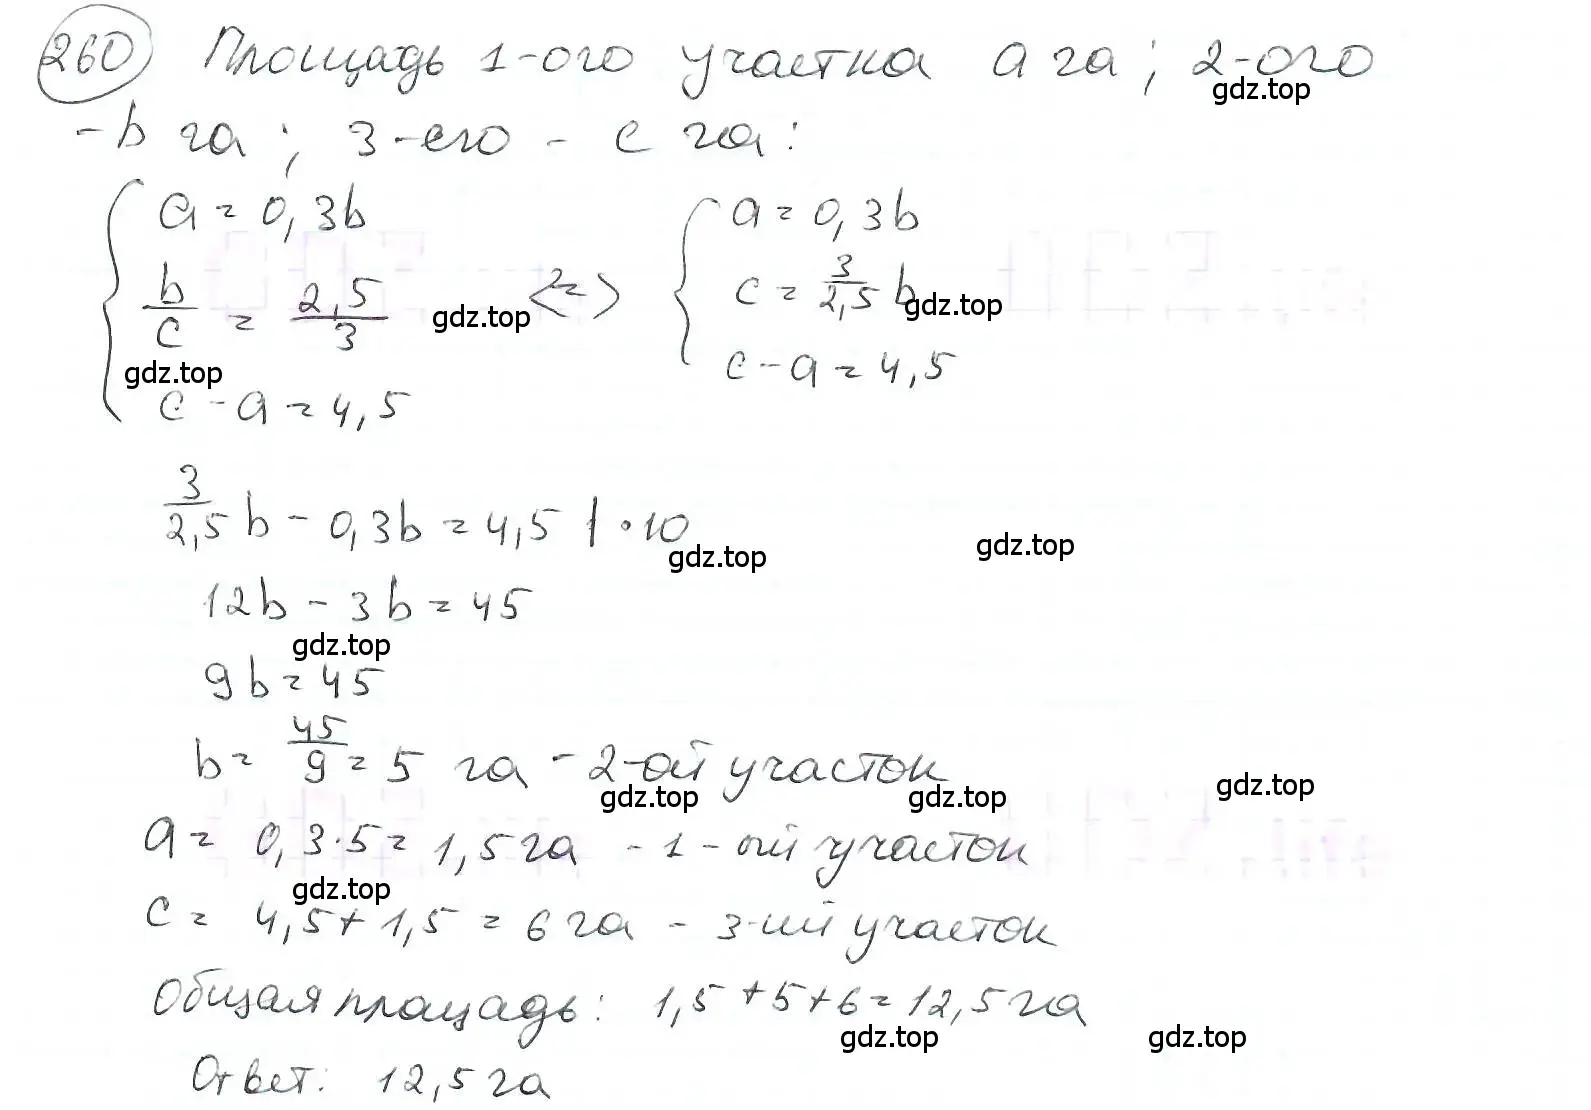 260 Площадь 1-ого участка a га; 2-ого
- b га; 3-его - c га:
{ a = 0,3b
b/c = 2,5/3
c - a = 4,5
<=>
{ a = 0,3b
c = 3/2,5 b
c - a = 4,5
3/2,5 b - 0,3b = 4,5 | · 10
12b - 3b = 45
9b = 45
b = 45/9 = 5 га - 2-ой участок
a = 0,3·5 = 1,5 га - 1-ый участок
c = 4,5 + 1,5 = 6 га - 3-ий участок
Общая площадь: 1,5 + 5 + 6 = 12,5 га
Ответ: 12,5 га
gdz.top
gdz.top
gdz.top
gdz.top
gdz.top
gdz.top
gdz.top
gdz.top
gdz.top
gdz.top
gdz.top
gdz.top
gdz.top